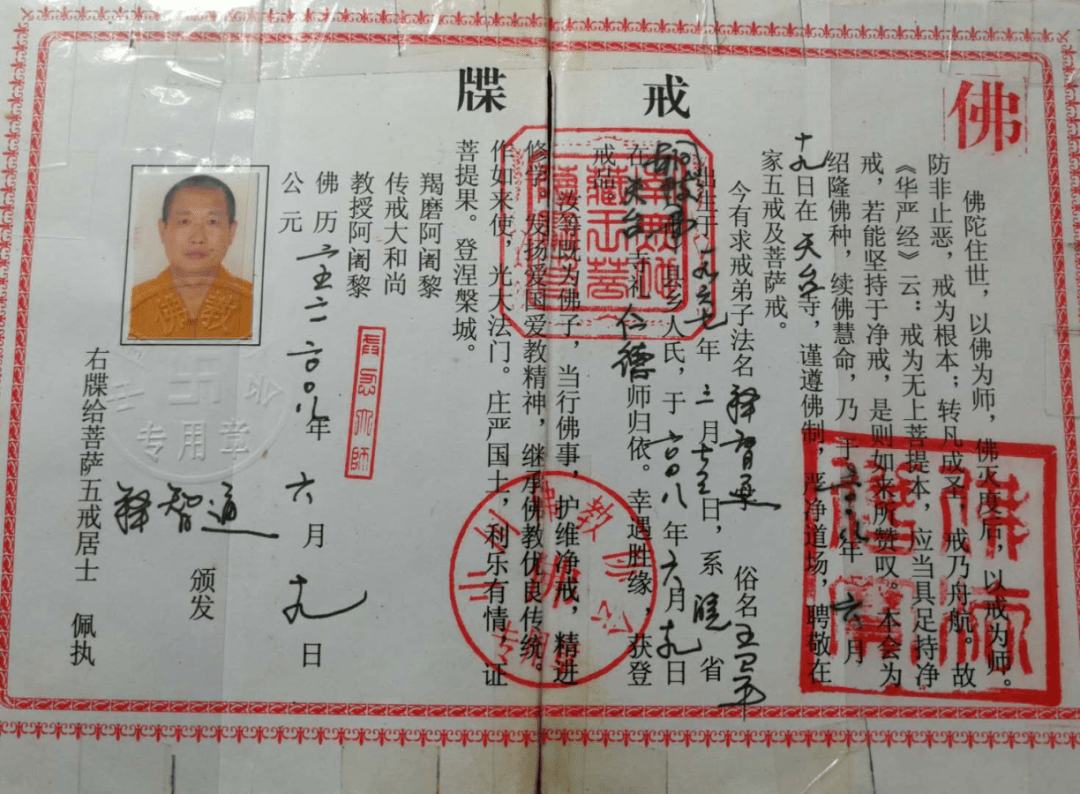 佛
戒牒
佛陀住世，以佛为师，佛灭度后，以戒为师。
防非止恶，戒为根本；转凡成圣，戒乃舟航。故
《华严经》云：戒为无上菩提本，应当具足持净
戒，若能坚持于净戒，是则如来所赞叹。本会为
绍隆佛种，续佛慧命，乃于二〇〇八年六月
十九日在天台寺，谨遵佛制，严净道场，聘敬在
家五戒及菩萨戒。
今有求戒弟子法名释智通 俗名王
出生于一九六七年三月 日，系皖省
县乡人氏，于二〇〇八年六月十九日
在天台寺礼仁德师归依。幸遇胜缘，获登
戒坛
汝等既为佛子，当行佛事，护维净戒，精进
修学，发扬爱国爱教精神，继承佛教优良传统。
作如来使，光大法门。庄严国土，利乐有情，证
菩提果。登涅槃城。
羯磨阿阇黎
传戒大和尚
教授阿阇黎
佛历
公元二〇〇八年六月十九日
颁发
右牒给菩萨五戒居士释智通佩执
佛教
专用章
佛教